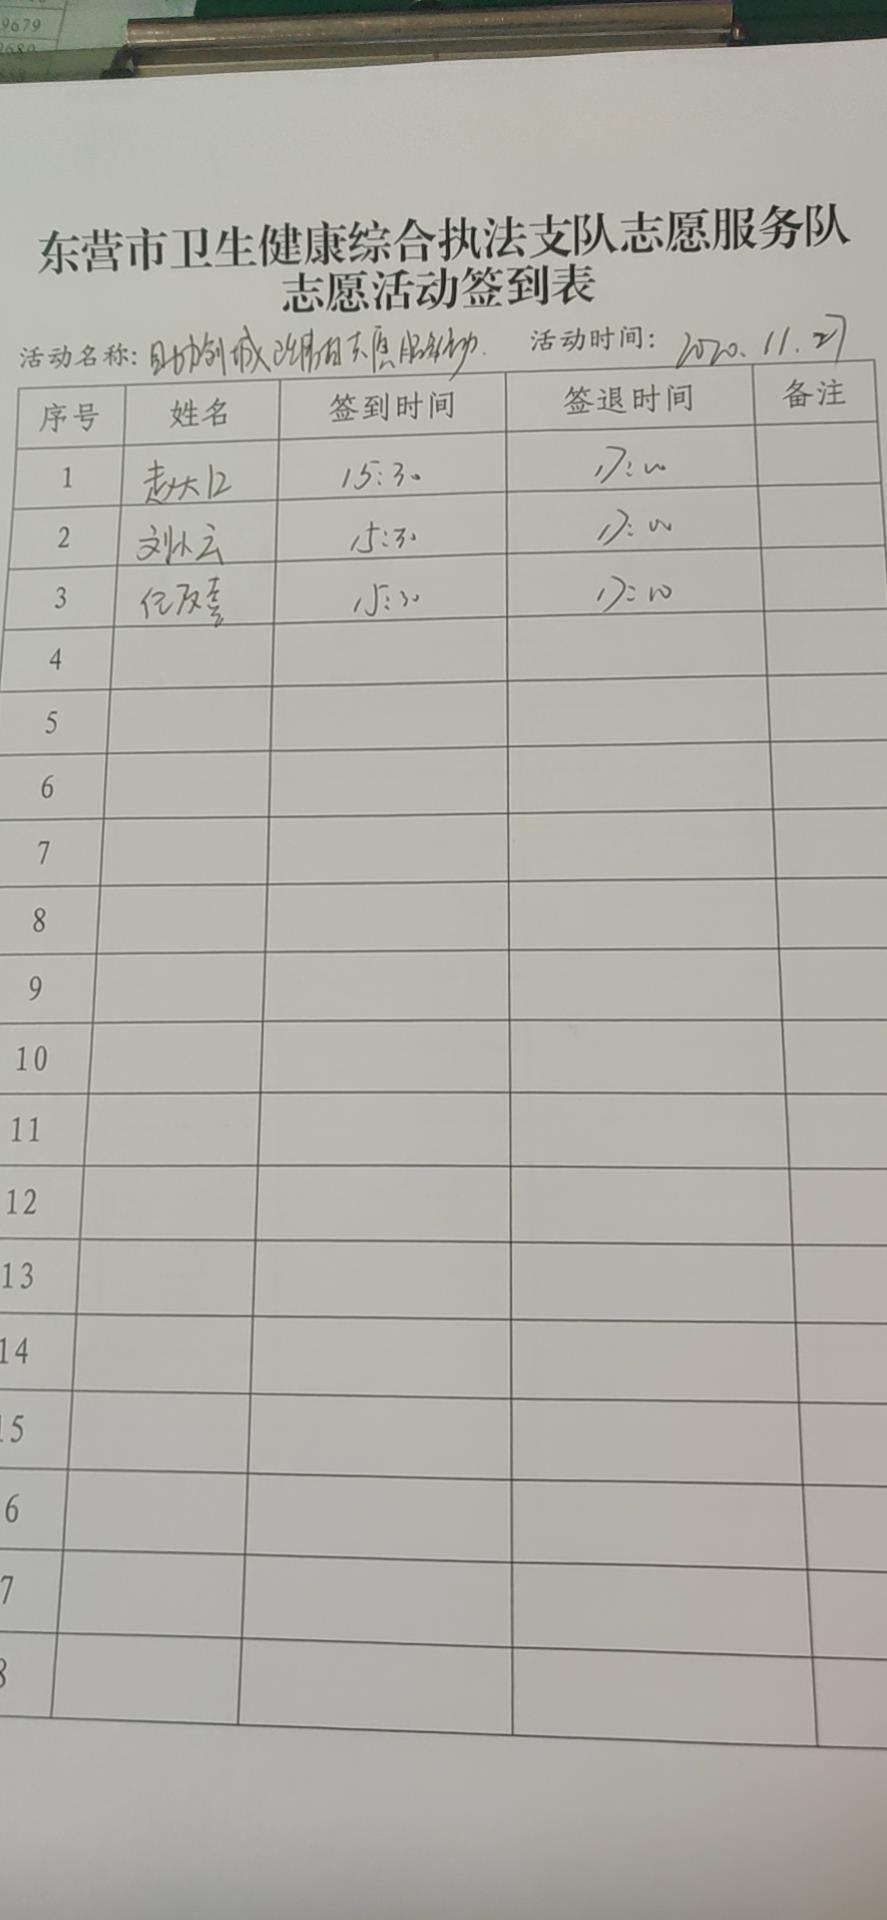 9679
东营市卫生健康综合执法支队志愿服务队
志愿活动签到表
活动名称: 助创城 志愿服务活动. 活动时间: 2020.11.27
序号 姓名 签到时间 签退时间 备注
1 15:30 17:00
2 刘小云 15:30 17:00
3 15:30 17:00
4
5
6
7
8
9
10
11
12
13
14
15
6
7
8